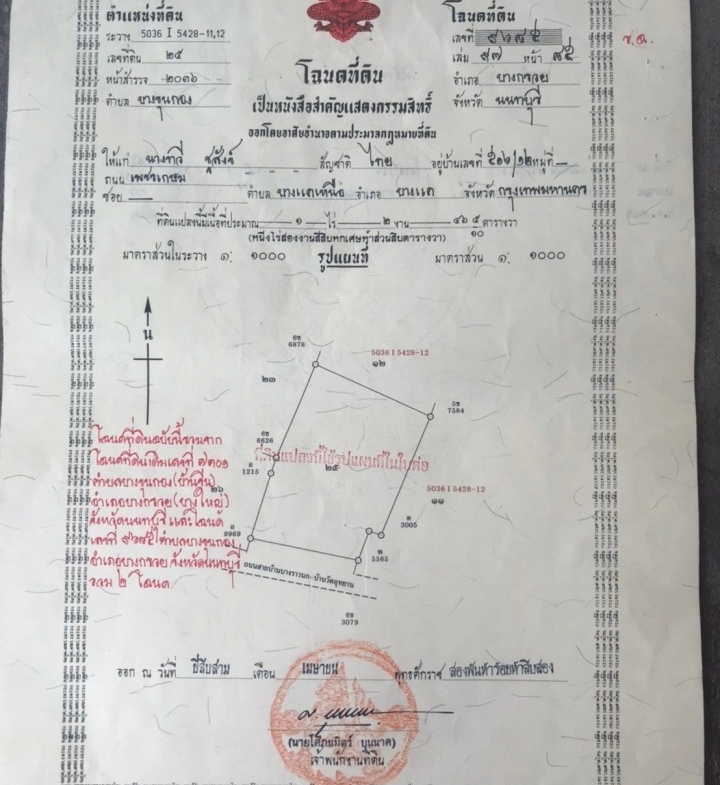 ตำแหน่งที่ดิน
ระวาง 5036 I 5428-11,12
เลขที่ดิน ๒๕
หน้าสำรวจ ๒๐๓๖
ตำบล บางขุนกอง
โฉนดที่ดิน
เลขที่ ๙๖๘๕
เล่ม ๙๗ หน้า ๘๕
อำเภอ บางกรวย
จังหวัด นนทบุรี
โฉนดที่ดิน
เป็นหนังสือสำคัญแสดงกรรมสิทธิ์
ออกโดยอาศัยอำนาจตามประมวลกฎหมายที่ดิน
ให้แก่ นางทวี สัญชาติ ไทย อยู่บ้านเลขที่ หมู่ที่ —
ถนน เพชรเกษม
ซอย — ตำบล บางแคเหนือ อำเภอ บางแค จังหวัด กรุงเทพมหานคร
ที่ดินแปลงนี้มีเนื้อที่ประมาณ ๑ ไร่ ๒ งาน ๔๖ ๕/๑๐ ตารางวา
(หนึ่งไร่สองงานสี่สิบหกเศษห้าส่วนสิบตารางวา)
มาตราส่วนในระวาง ๑: ๑๐๐๐ รูปแผนที่ มาตราส่วน ๑: ๑๐๐๐
น
6ข
6878
5036 I 5428-12
๑๒
๒๓
5ข
7584
6ข
6626
ที่ดินแปลงนี้ใช้รูปแผนที่ในใบต่อ
๒๕
อ
1215
๒๖
5036 I 5428-12
๑๑
อ
3005
อ
9969
พ
5565
ถนนสายบ้านบางราวนก-บ้านวัดอุทยาน
6ข
3079
โฉนดที่ดินฉบับนี้รวมจาก
โฉนดที่ดินเดิมเลขที่ ๗๓๐๑
ตำบลบางขุนกอง
อำเภอบางกรวย (บางใหญ่)
จังหวัดนนทบุรี และโฉนด
เลขที่ ตำบลบางขุนกอง
อำเภอบางกรวย จังหวัดนนทบุรี
รวม ๒ โฉนด
ออก ณ วันที่ ยี่สิบสาม เดือน เมษายน พุทธศักราช สองพันห้าร้อยห้าสิบสอง
(นายโสภณมิตร์ บุนนาค)
เจ้าพนักงานที่ดิน